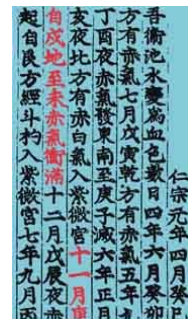 仁宗元年四月癸巳
吾衞池水變爲血色數日四年六月癸卯
方有赤氣七月戊寅乾方有赤氣五年
丁酉夜赤氣發東南至庚子滅六年正月
亥夜北方有赤白氣入紫微宮十一月庚
自戌地至未赤氣衝滿十二月戊辰夜赤
起自艮方經斗杓入紫微宮七年九月丙